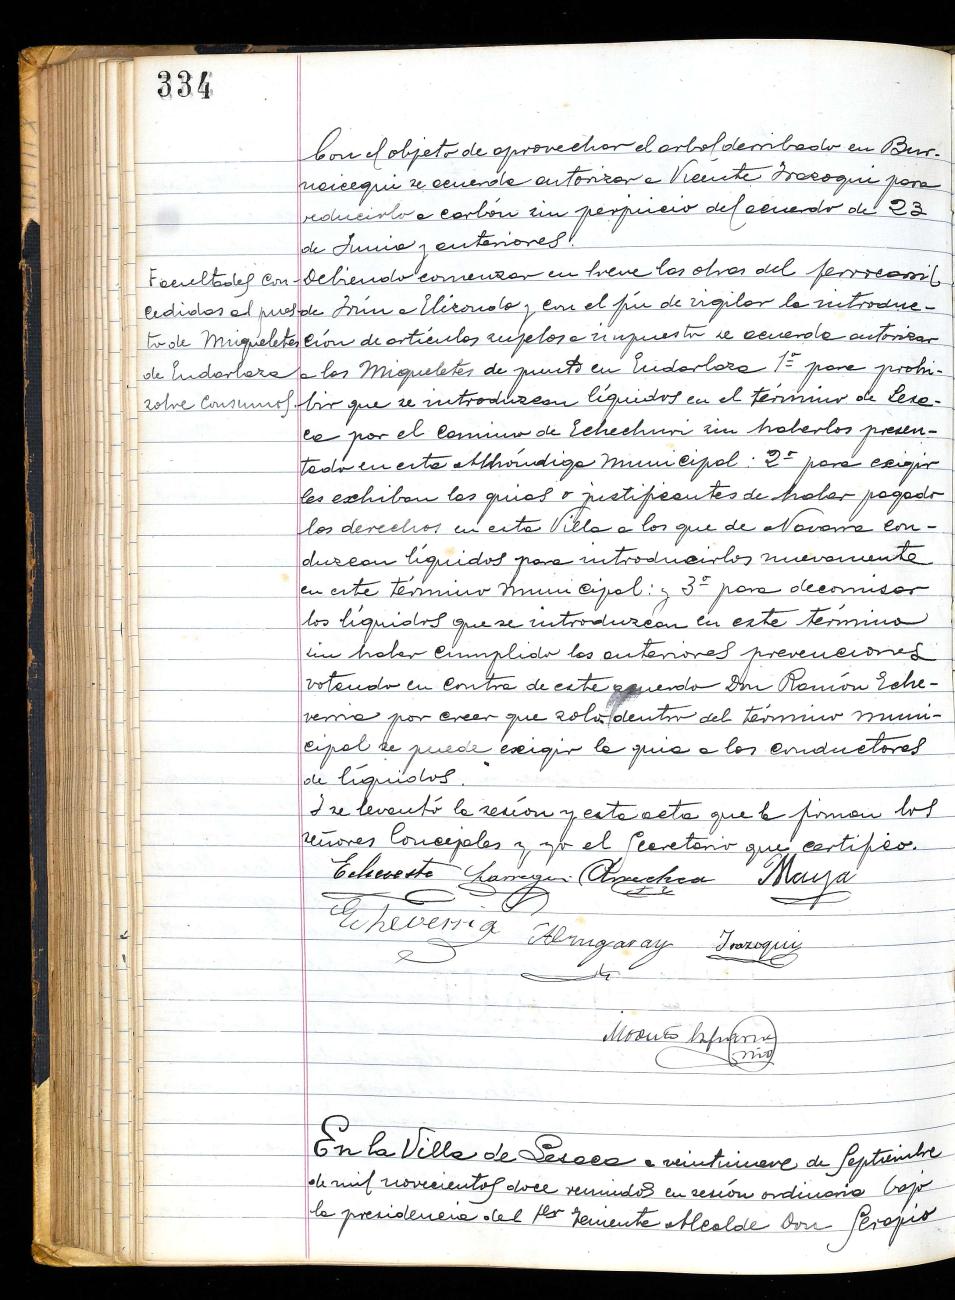 334
Con el objeto de aprovechar el arbol derribado en Bur-
naicegui se acuerda autorizar a Vicente Irazoqui para
reducirlo a carbón sin perjuicio del acuerdo de 23
de Junio y anteriores.
Facultades con-
cedidas al pues-
to de Miqueletes
de Endarlaza
sobre consumos.
Debiendo comenzar en breve las obras del ferrocarril
de Irún a Elizondo y con el fin de vigilar la introduc-
ción de artículos sujetos a impuesto se acuerda autorizar
a los Miqueletes de punto en Endarlaza 1º para prohi-
bir que se introduzcan líquidos en el término de Lesa-
ca por el camino de Echechuri sin haberlos presen-
tado en esta Alhóndiga Municipal: 2º para exigir
les exhiban las guias o justificantes de haber pagado
los derechos en esta Villa a los que de Navarra con-
duzcan líquidos para introducirlos nuevamente
en este término Municipal: y 3º para decomisar
los líquidos que se introduzcan en este término
sin haber cumplido las anteriores prevenciones
votando en contra de este acuerdo Don Ramón Eche-
verria por creer que solo dentro del término muni-
cipal se puede exigir la guia a los conductores
de líquidos.
Y se levantó la sesión y esta acta que la firman los
señores Concejales y yo el Secretario que certifico.
Echeveste Larregui Maya
Echeverria Almgaray Irazoqui
Modesto
En la Villa de Lesaca a veintinueve de Septiembre
de mil novecientos doce reunidos en sesión ordinaria bajo
la presidencia del 1er Teniente Alcalde Don Serapio